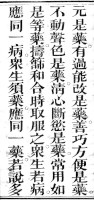 元是藥有過能改是藥善巧方便是藥
不動聲色是藥清心斷慾是藥常用如
是等藥擣篩和合時取服之衆生若病
應同一病衆生須藥應同一藥若說多